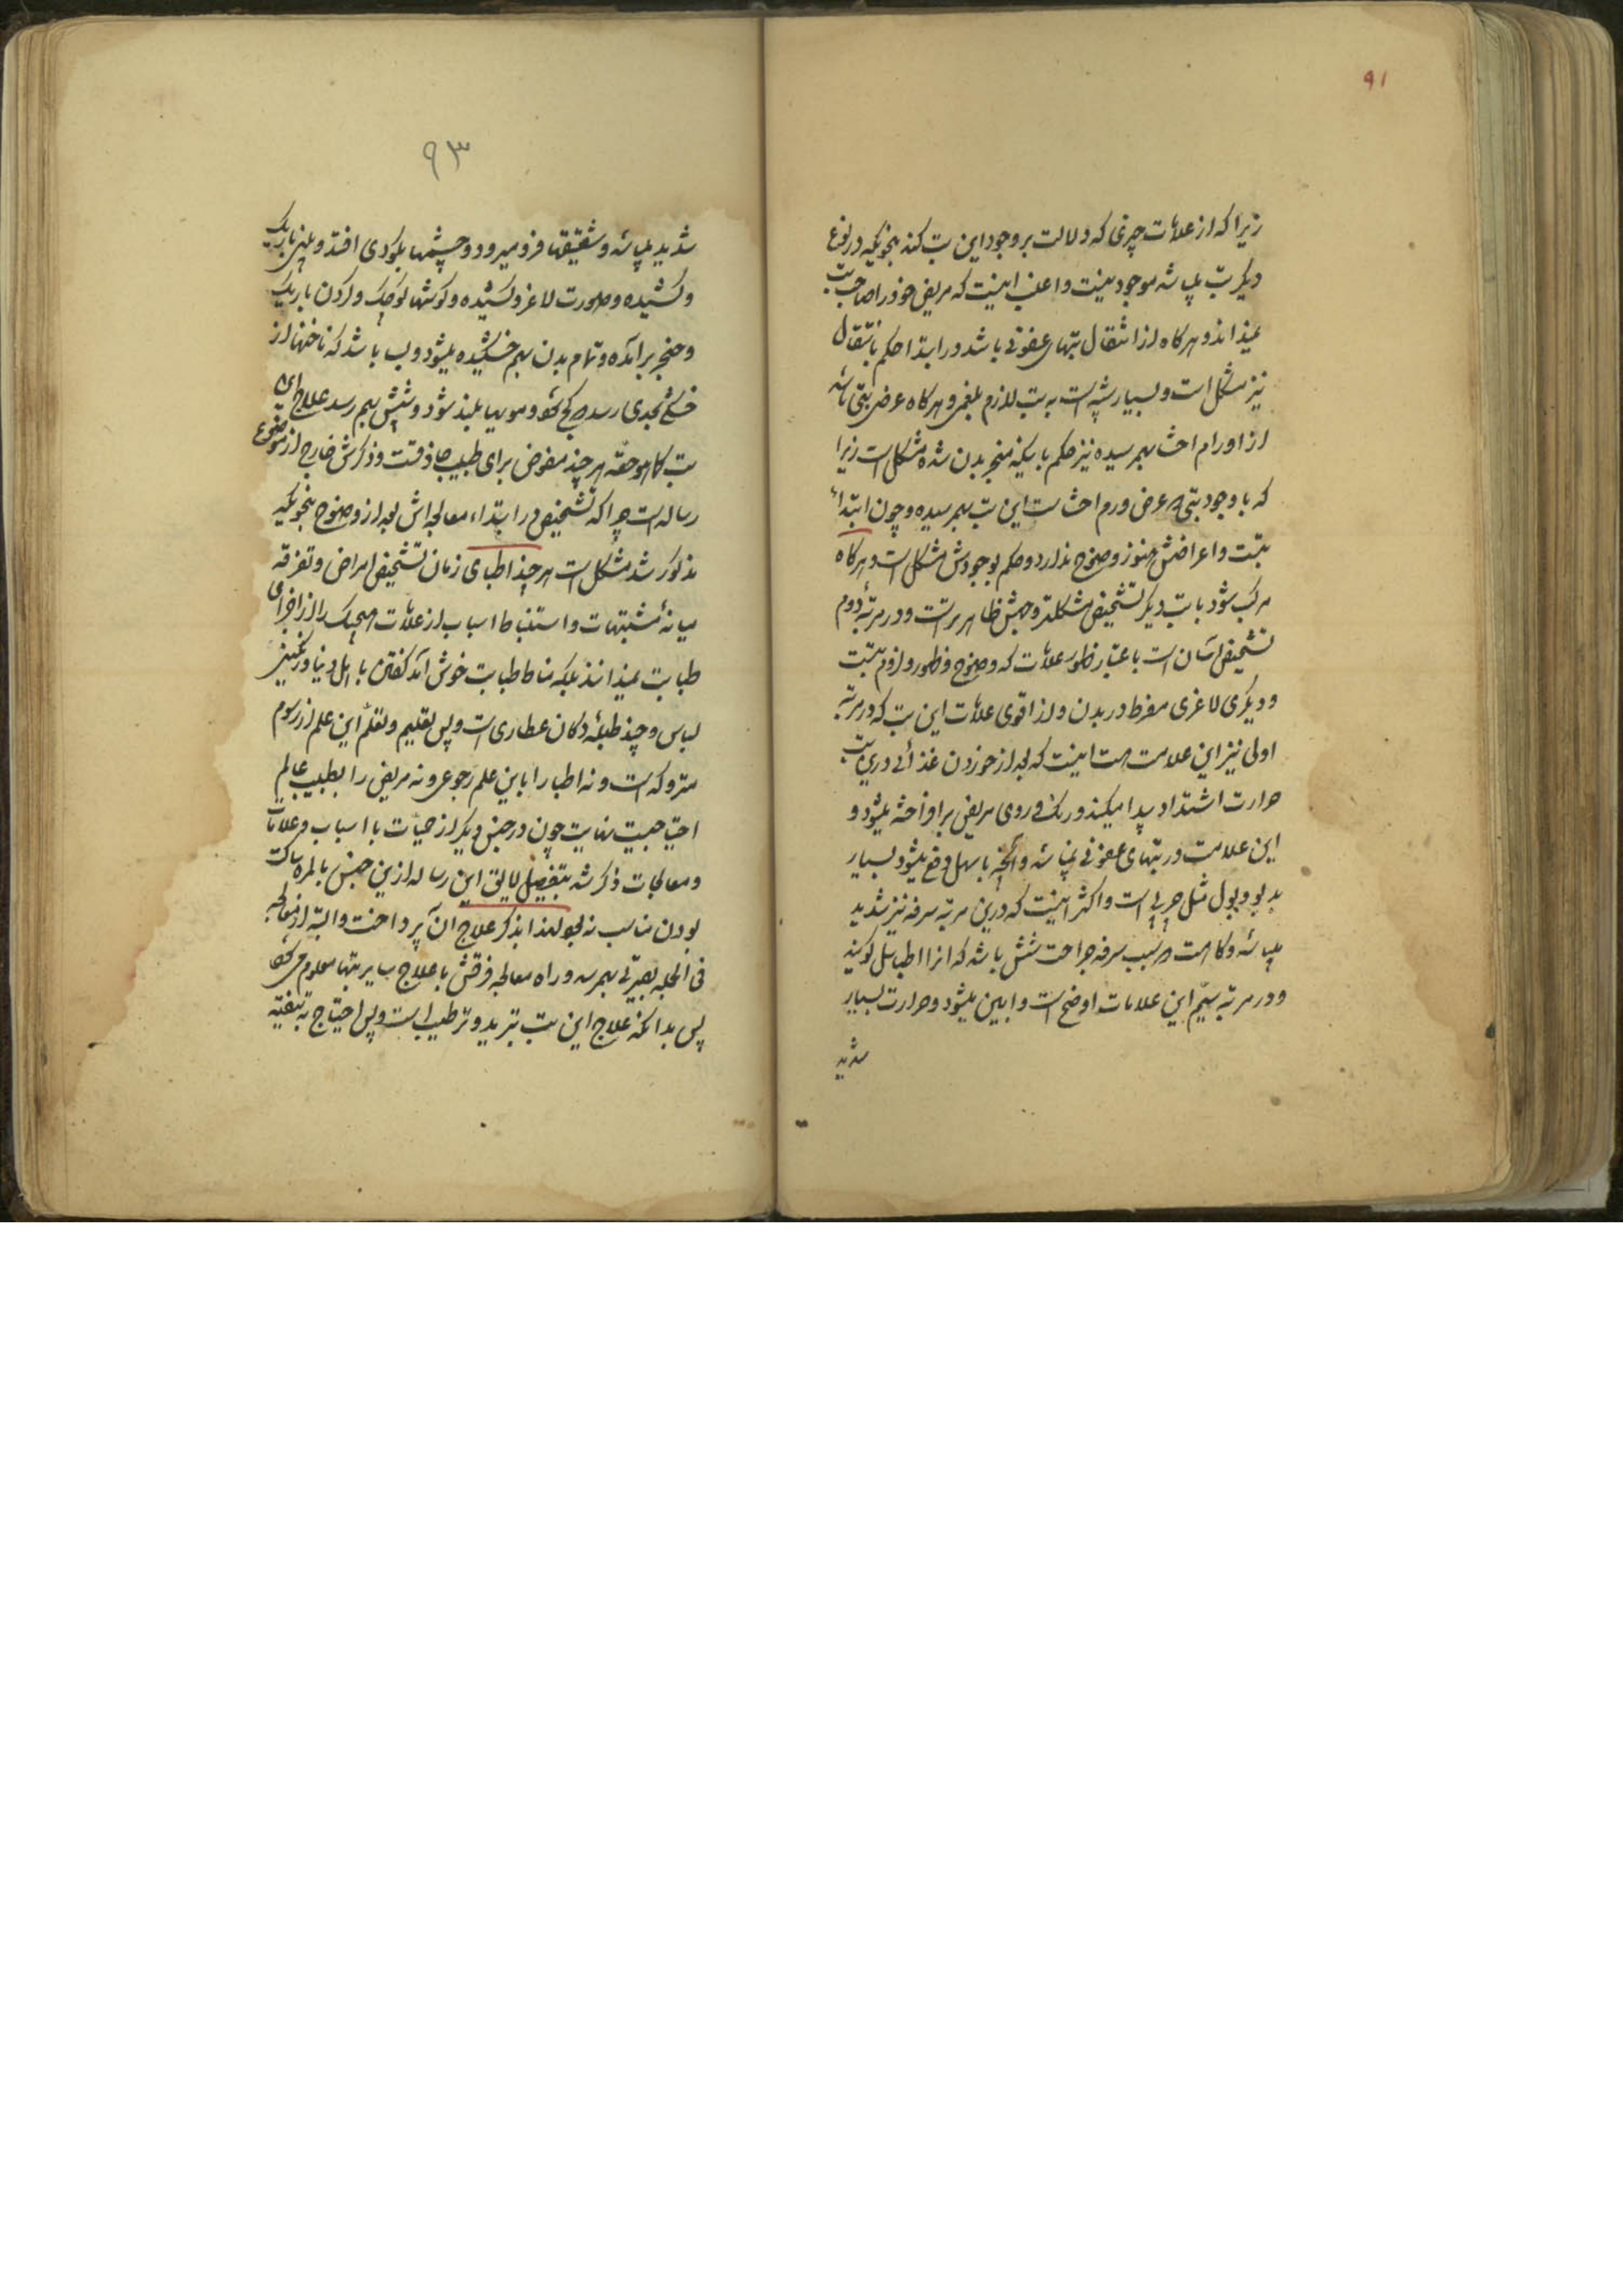 ۹۱
زیرا که از علامات چیزی که دلالت بر وجود این تب کند بنحویکه در نوع
دیگر تب میباشد موجود نیست و اغلب اینست که مریض خود را صاحب تب
نمیداند و هرکاه از انتقال تبهای عفونی باشد در ابتدا حکم بانتقال
نیز مشکل است و بسیار شبیه است به تب لازم بلغمی و هرکاه عرض تبی باشد
از اورام احشا بهم رسیده نیز حکم باینکه منجر بدن شده مشکل است زیرا
که با وجود تبی که عرض ورم احشا است این تب بهم رسیده و چون ابتداء
تبست و اعراضش هنوز وضوح ندارد و حکم بوجودش مشکل است و هرکاه
مرکب شود با تب دیگر تشخیص مشکلتر و ظاهر تر است و در مرتبهٔ دوم
تشخیص آسان است باعتبار ظهور علامات که وضوح و ظهور و لزوم تبست
و دیگری لاغری مفرط در بدن و از اقوی علامات این تب که در مرتبه
اولی نیز این علامت هست اینست که بعد از خوردن غذائی درین تب
حرارت اشتداد پیدا میکند و رنک و روی مریض برافراخته میشود و
این علامت در تبهای عفونی نمیباشد و آنچه باسهال دفع میشود بسیار
بد بو و بول مثل چربی است و اکثر اینست که درین مرتبه سرفه نیز شدید
میباشد و کاهست که سبب سرفه جراحت شش باشد که انرا اطبا سل گویند
و در مرتبه سیّم این علامات اوضح است و ابین میشود و حرارت بسیار
شدید
۹۳
شدید میباشد و شقیقها فرو میرود و چشمها بکودی افتد و بینی باریک
و کشیده و صورت لاغر و کشیده و کوشها کوچک و کردن باریک
و حنجر برآمده و تمام بدن بهم خشکیده میشود و بسا باشد که ناخنها از
خشکی بحدی رسد که کج شود و مویها بلند شود و شپش بهم رسد علاج این
تب کما هو حقّه هر چند مفوض برای طبیب حاذقست و ذکرش خارج از موضوع
رساله است چرا که تشخیص در ابتداء معالجه اش بعد از وضوح بنحویکه
مذکور شد مشکل است هر چند اطبای زمان تشخیص امراض و تفرقه
میانهٔ مشتبهات و استنباط اسباب از علامات هیچیک را از اجزای
طبابت نمیدانند بلکه مناط طبابت خوش آمد کفتن با اهل دنیا و رنگینی
لباس و چند طبلهٔ دکان عطاری است و بس تعلیم و تعلّم این علم از رسوم
متروکه است و نه اطبا را باین علم رجوعی و نه مریض را بطبیب عالم
احتیاجیست نهایت چون در جنس دیگر از حمیّات با اسباب و علامات
و معالجات ذکر شد بتفصیل لایق این رساله ازین جنس بالمره ساکت
بودن مناسب نه بود لهذا بذکر علاج آن پرداخت و البته از معالجه
فی الجمله بصیرتی بهم رسد و راه معالجه و فرقش با علاج سایر تبها معلوم می شود
پس بدانکه علاج این تب تبرید و ترطیب است و بس احتیاج به تنقیه